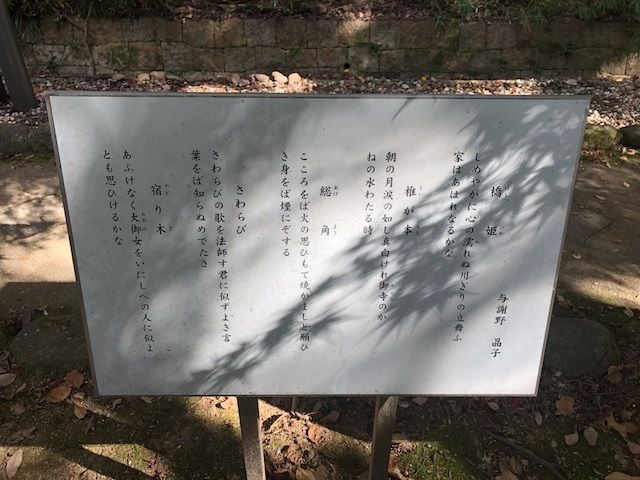 橋姫 与謝野 晶子
しめやかに心の濡れぬ川ぎりの立舞ふ
家はあはれなるかな
椎が本
朝の月涙の如し真白けれ御寺のか
ねの水わたる時
総角
こころをば火の思ひもて焼かましと願ひ
き身をば煙にぞする
さわらび
さわらびの歌を法師す君に似ずよき言
葉をば知らぬめでたさ
宿り木
あふけなく大御女をいにしへの人に似よ
とも思ひけるかな